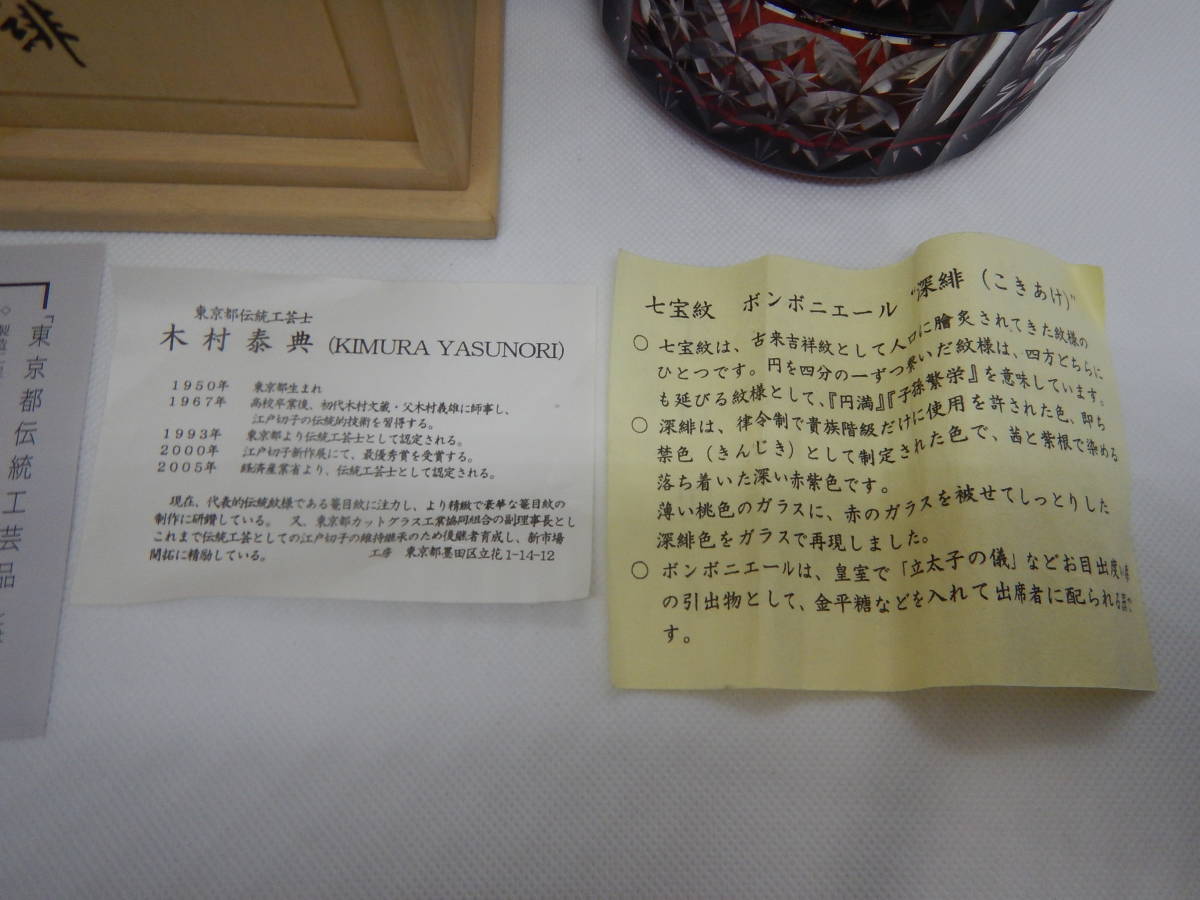 緋
「東京都伝統工芸品
東京都伝統工芸士
木村泰典 (KIMURA YASUNORI)
1950年 東京都生まれ
1967年 高校卒業後、初代木村文蔵・父木村義雄に師事し、
江戸切子の伝統的技術を習得する。
1993年 東京都より伝統工芸士として認定される。
2000年 江戸切子新作展にて、最優秀賞を受賞する。
2005年 経済産業省より、伝統工芸士として認定される。
現在、代表的伝統紋様である篭目紋に注力し、より精緻で豪華な篭目紋の
制作に研鑽している。 又、東京都カットグラス工業協同組合の副理事長とし
これまで伝統工芸としての江戸切子の維持継承のため後継者育成し、新市場
開拓に精励している。 工房 東京都墨田区立花1-14-12
七宝紋 ボンボニエール “深緋（こきあけ）”
○ 七宝紋は、古来吉祥紋として人口に膾炙されてきた紋様の
ひとつです。円を四分の一ずつ繋いだ紋様は、四方どちらに
も延びる紋様として、『円満』『子孫繁栄』を意味しています。
○ 深緋は、律令制で貴族階級だけに使用を許された色、即ち
禁色（きんじき）として制定された色で、茜と紫根で染める
落ち着いた深い赤紫色です。
薄い桃色のガラスに、赤のガラスを被せてしっとりした
深緋色をガラスで再現しました。
○ ボンボニエールは、皇室で「立太子の儀」などお目出度い
の引出物として、金平糖などを入れて出席者に配られる
す。